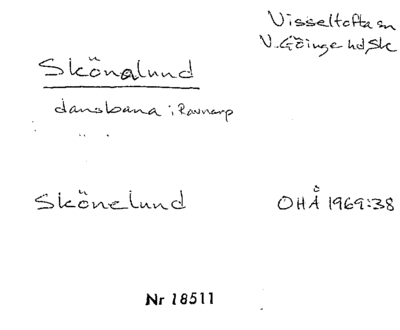 Visseltofta sn
V. Göinge hd, Sk
Skönalund
dansbana i Ravnarp
Skönelund
OHÅ 1969:38
Nr 18511